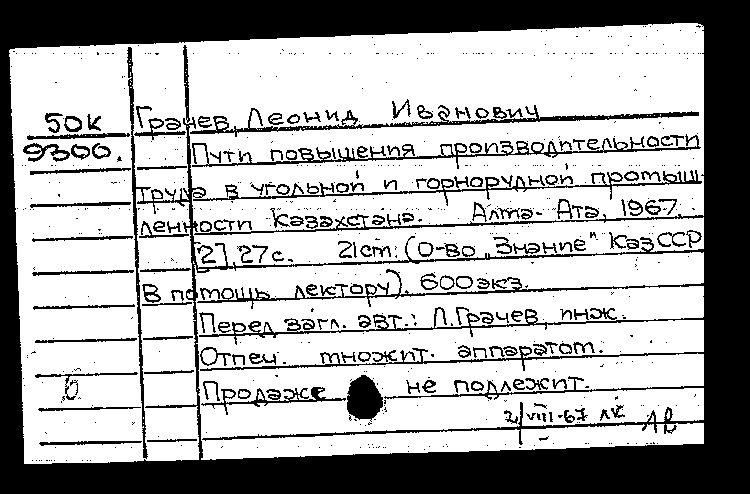 50К
9300.
Грачев, Леонид Иванович
Пути повышения производительности
труда в угольной и горнорудной промыш-
ленности Казахстана. Алма-Ата, 1967.
[2], 27 с. 21 см. (О-во „Знание" КазССР
В помощь лектору). 600 экз.
Перед загл. авт.: Л. Грачев, инж.
Отпеч. множит. аппаратом.
Продаже не подлежит.
б
2/VIII-67 ЛК ЛВ